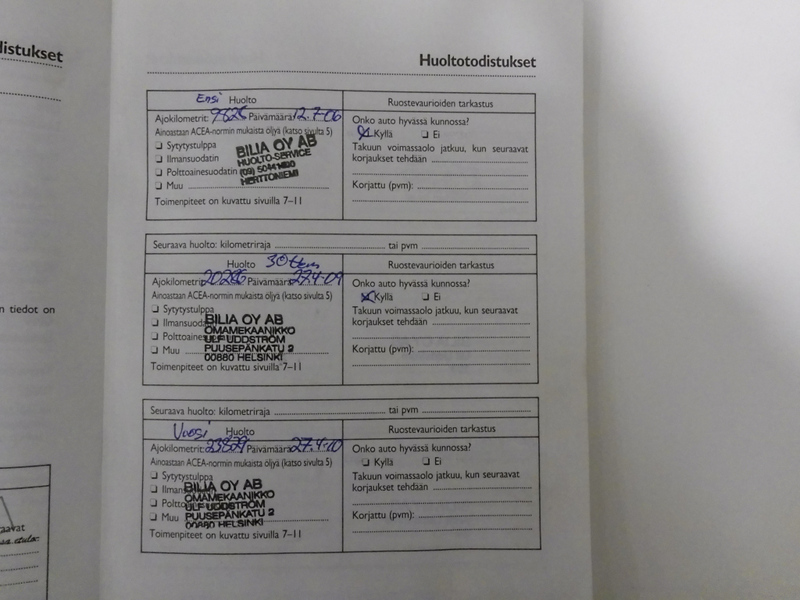 distukset
n tiedot on
aavat
Huoltotodistukset
Ensi Huolto
Ruostevaurioiden tarkastus
Ajokilometrit: Päivämäärä: 12.7-06
Ainoastaan ACEA-normin mukaista öljyä (katso sivulta 5)
❏ Sytytystulppa
❏ Ilmansuodatin
❏ Polttoainesuodatin
❏ Muu
BILIA OY AB
HUOLTO-SERVICE
HERTTONIEMI
Toimenpiteet on kuvattu sivuilla 7–11
Onko auto hyvässä kunnossa?
Kyllä ❏ Ei
Takuun voimassaolo jatkuu, kun seuraavat
korjaukset tehdään
Korjattu (pvm):
Seuraava huolto: kilometriraja tai pvm
Huolto
Ruostevaurioiden tarkastus
Ajokilometrit: 20286 Päivämäärä: 27.4-09
Ainoastaan ACEA-normin mukaista öljyä (katso sivulta 5)
❏ Sytytystulppa
❏ Ilmansuodatin
❏ Polttoainesuodatin
❏ Muu
BILIA OY AB
OMAMEKAANIKKO
ULF UDDSTRÖM
PUUSEPÄNKATU 2
00880 HELSINKI
Toimenpiteet on kuvattu sivuilla 7–11
Onko auto hyvässä kunnossa?
Kyllä ❏ Ei
Takuun voimassaolo jatkuu, kun seuraavat
korjaukset tehdään
Korjattu (pvm):
Seuraava huolto: kilometriraja tai pvm
Vuosi Huolto
Ruostevaurioiden tarkastus
Ajokilometrit: 23879 Päivämäärä: 27.4-10
Ainoastaan ACEA-normin mukaista öljyä (katso sivulta 5)
❏ Sytytystulppa
❏ Ilmansuodatin
❏ Polttoainesuodatin
❏ Muu
BILIA OY AB
OMAMEKAANIKKO
ULF UDDSTRÖM
PUUSEPÄNKATU 2
00880 HELSINKI
Toimenpiteet on kuvattu sivuilla 7–11
Onko auto hyvässä kunnossa?
❏ Kyllä ❏ Ei
Takuun voimassaolo jatkuu, kun seuraavat
korjaukset tehdään
Korjattu (pvm):